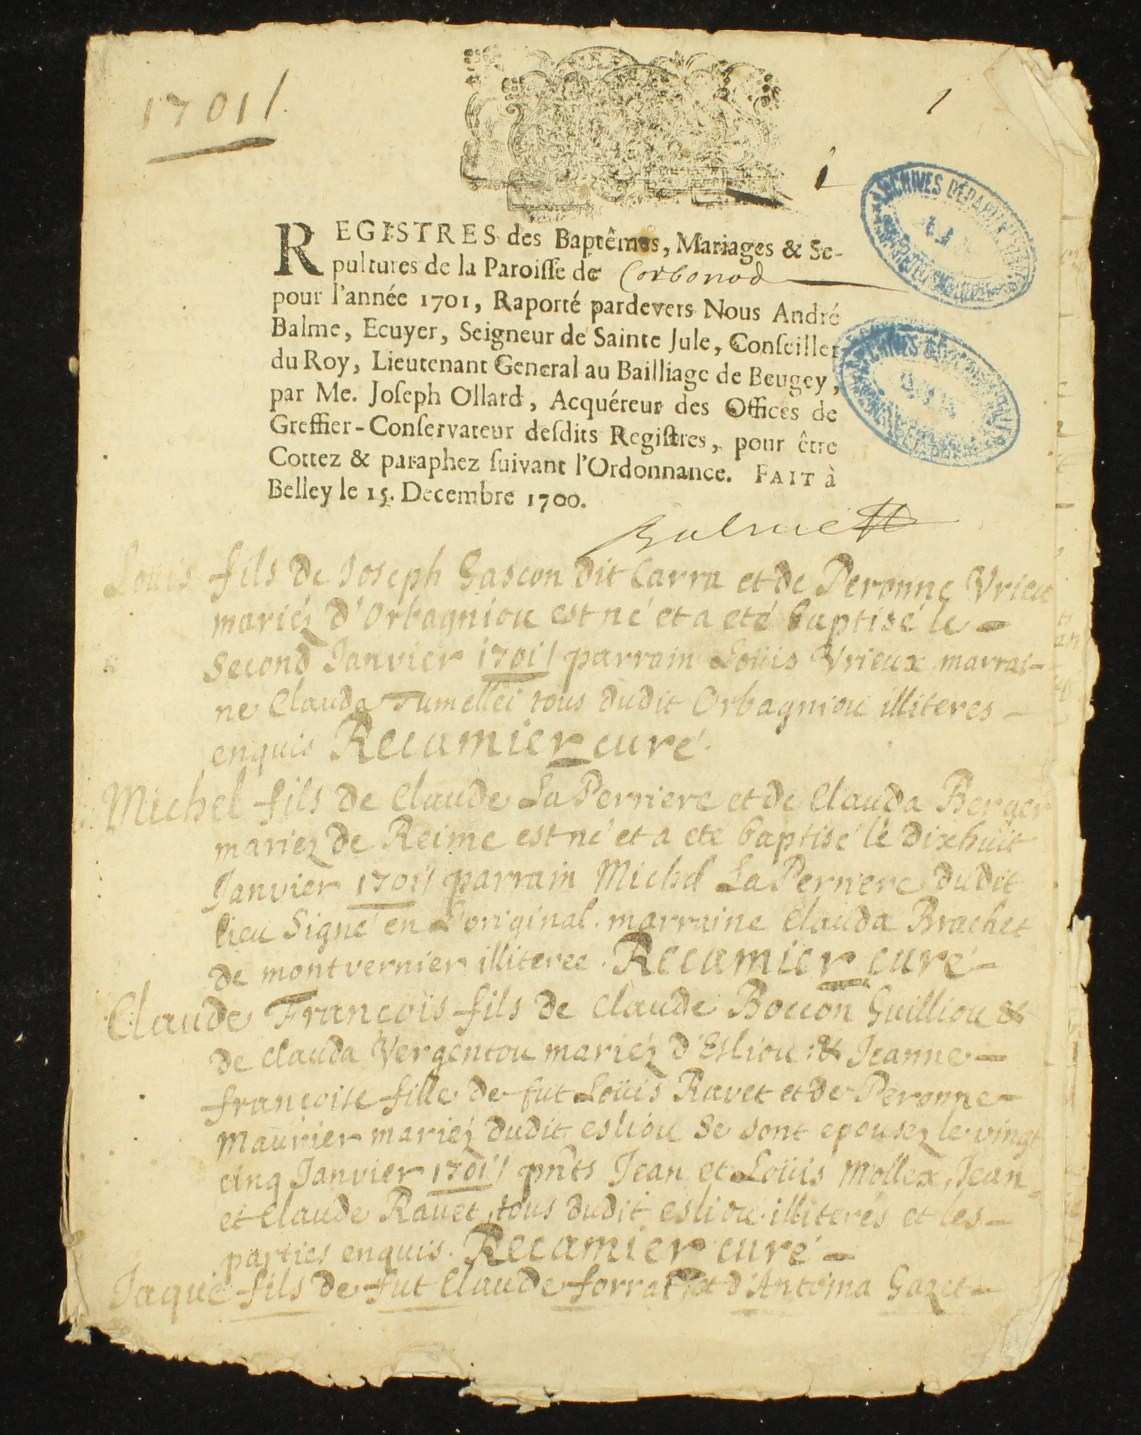 1701/.
1
1
ARCHIVES DÉPART
REGISTRES des Baptêmes, Mariages & Se-
pultures de la Paroisse de Corbonod
pour l'année 1701, Raporté pardevers Nous André
Balme, Ecuyer, Seigneur de Sainte Jule, Conseiller
du Roy, Lieutenant General au Bailliage de Beugey,
par Me. Joseph Ollard, Acquéreur des Offices de
Greffier-Conservateur desdits Registres, pour être
Cottez & paraphez suivant l'Ordonnance. FAIT à
Belley le 15. Decembre 1700.
Balme
Loüis fils de Joseph Gascon dit Carra et de Peronne Vrieu
mariéz d'Orbagniou est né et a eté baptisé le -
second Janvier 1701/ parrain Loüis Vrieux marrai-
ne Clauda Tumellei tous dudit Orbagniou illiteres -
enquis Recamier curé.
Michel fils de Claude La Perriere et de Clauda Berger
mariez de Reime est né et a eté baptisé le dixhuit
Janvier 1701/ parrain Michel La Perriere dudit
lieu Signé en L'original. marraine Clauda Brachet
de montvernier illiteree. Recamier curé -
Claude François fils de Claude Boccon Guilliou &
de Clauda Vergentou mariéz d'Esliou: & Jeanne -
françoise fille de fut Loüis Ravet et de Peronne -
Maurier mariéz dudit esliou se sont epousez le vingt
cinq Janvier 1701/ pnts Jean et Loüis Mollex, Jean
et Claude Ravet, tous dudit esliou illiterés et les -
parties enquis. Recamier curé -
Jaque fils de fut Claude forrat et d'Antoina Gazet -